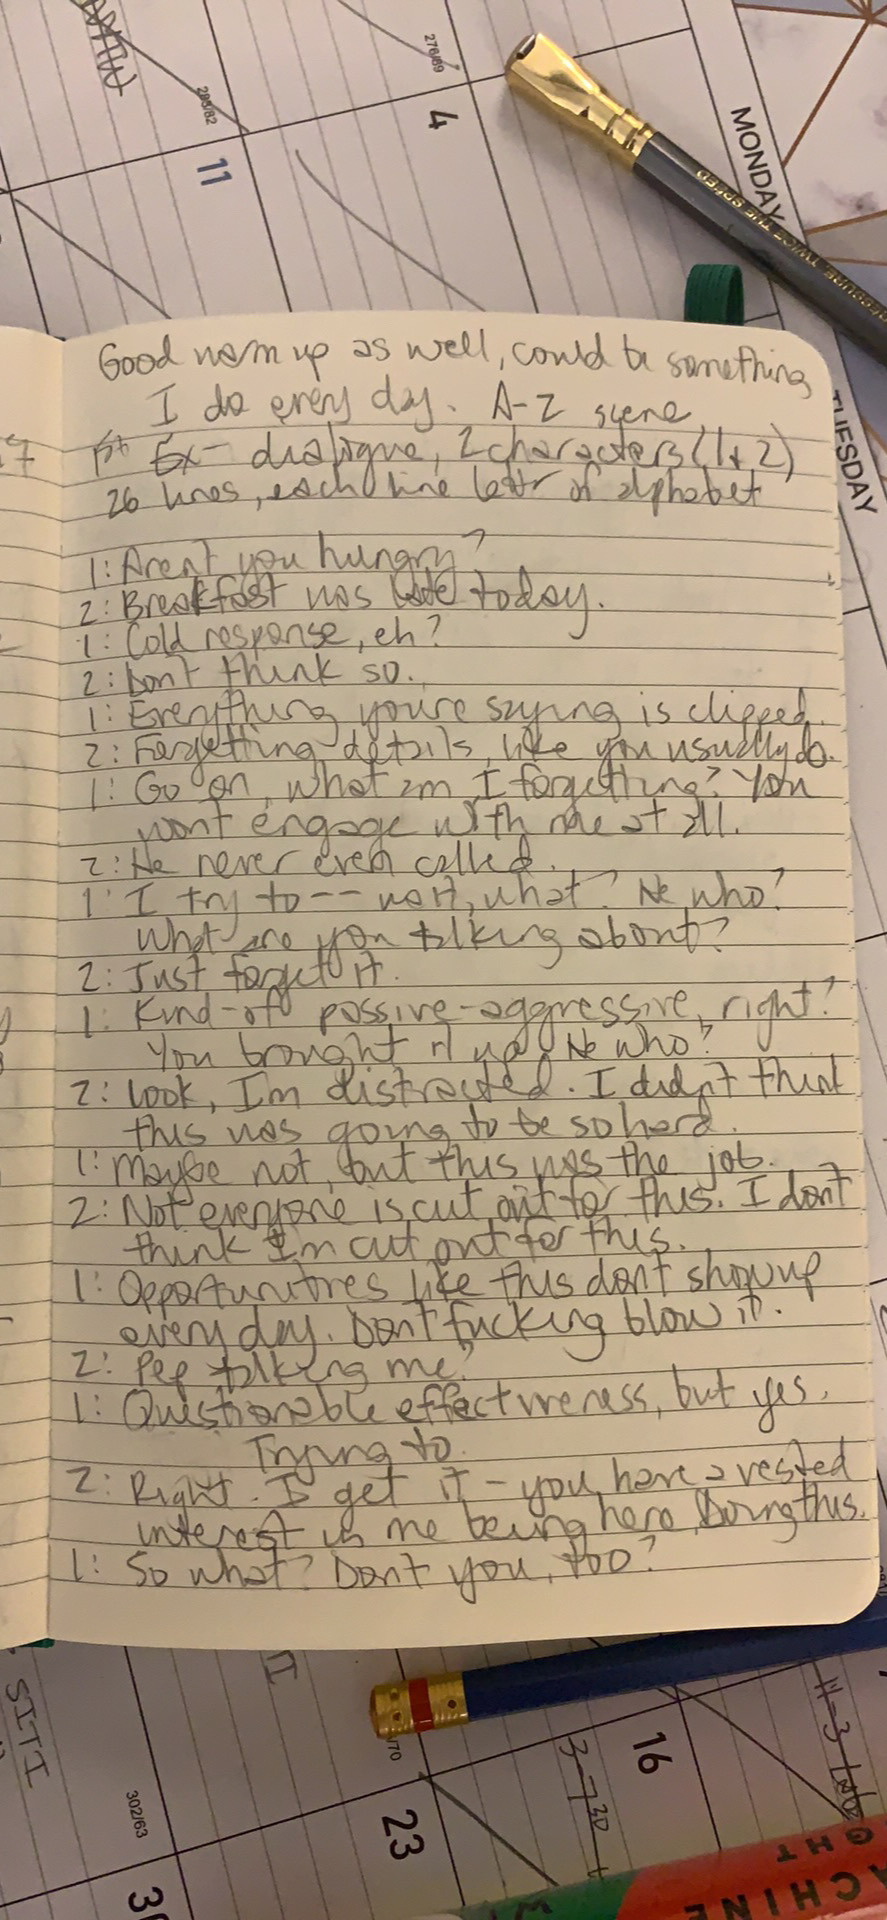 276/89
4
MONDAY
285/82
11
TWICE THE SPEED
TUESDAY
Good warm up as well, could be something
I do every day. A-Z scene
Ex- dialogue, 2 characters (1+2)
26 lines, each line letter of alphabet
1: Aren't you hungry?
2: Breakfast was late today.
1: Cold response, eh?
2: Don't think so.
1: Everything you're saying is clipped.
2: Forgetting details, like you usually do.
1: Go on, what am I forgetting? You
won't engage with me at all.
2: He never even called.
1: I try to -- wait, what? He who?
What are you talking about?
2: Just forget it.
1: Kind-of passive-aggressive, right?
You brought it up. He who?
2: Look, I'm distracted. I didn't think
this was going to be so hard.
1: Maybe not, but this was the job.
2: Not everyone is cut out for this. I don't
think I'm cut out for this.
1: Opportunities like this don't show up
every day. Don't fucking blow it.
2: Pep talking me?
1: Questionable effectiveness, but yes.
Trying to.
2: Right. I get it - you have a vested
interest in me being here, doing this.
1: So what? Don't you, too?
16
302/63
23